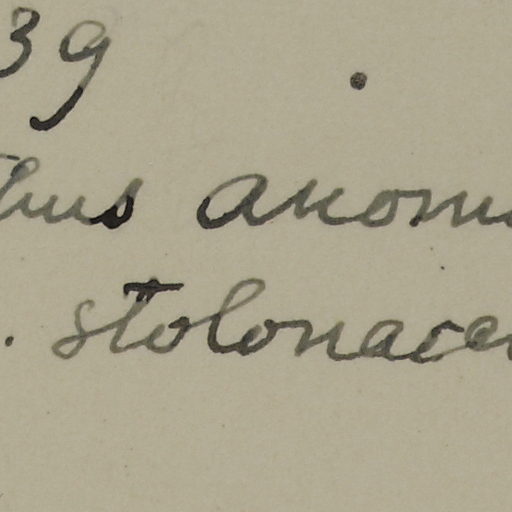 39
thus anom
. stolonacea